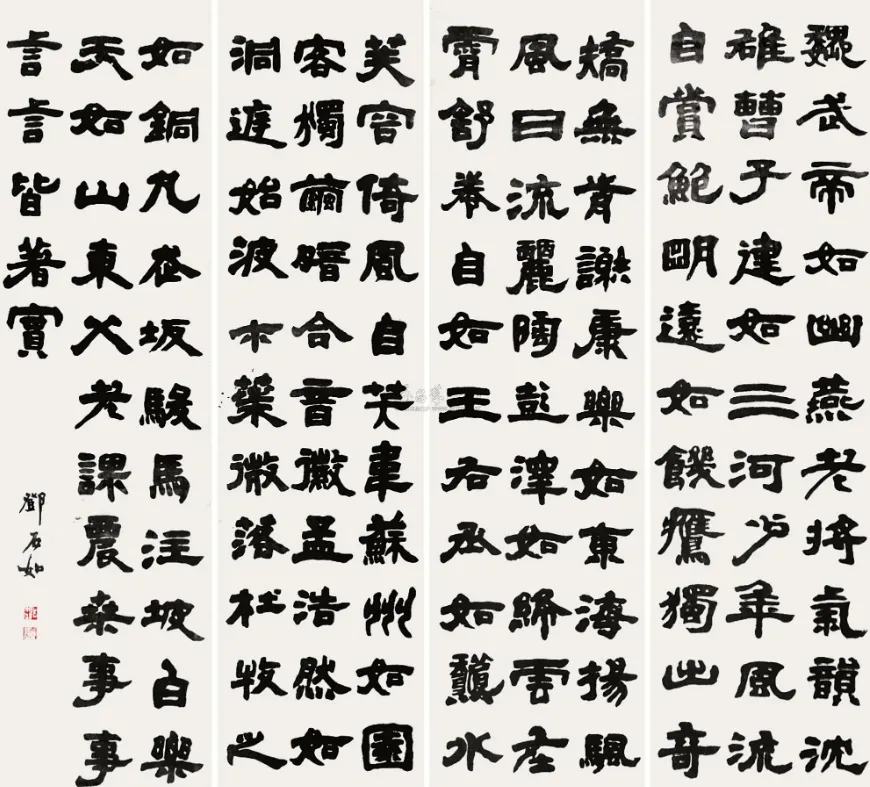 魏武帝如幽燕老將氣韻沈
雄曹子建如三河少年風流
自賞鮑明遠如饑鷹獨出奇
矯無前謝康樂如東海揚颿
風日流麗陶彭澤如絳雲在
霄舒卷自如王右丞如龝水
芙容倚風自笑韋蘇州如園
客獨繭暗合音徽孟浩然如
洞庭始波木葉微落杜牧之
如銅丸走坂駿馬注坡白樂
天如山東父老課農桑事事
言言皆著實
鄧石如